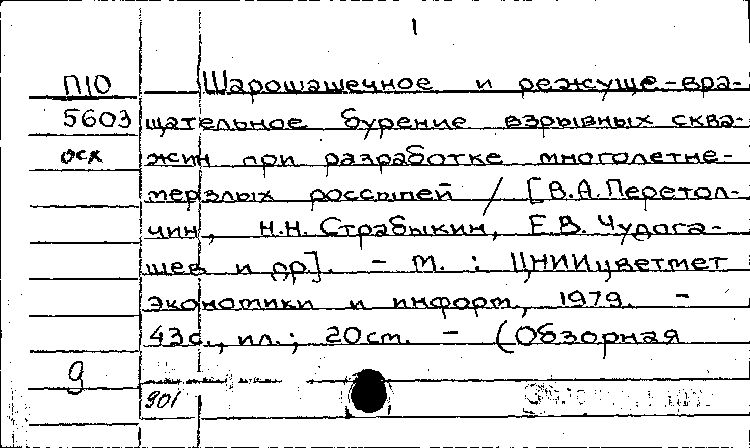 1
П10 Шарошашечное и режуще-вра-
5603 щательное бурение взрывных сква-
оск жин при разработке многолетне-
мерзлых россыпей / [В.А. Перетол-
чин, Н.Н. Страбыкин, Е.В. Чудога-
шев и др]. - М. : ЦНИИцветмет
экономики и информ, 1979. -
43с., ил.; 20см. - (Обзорная
9
901